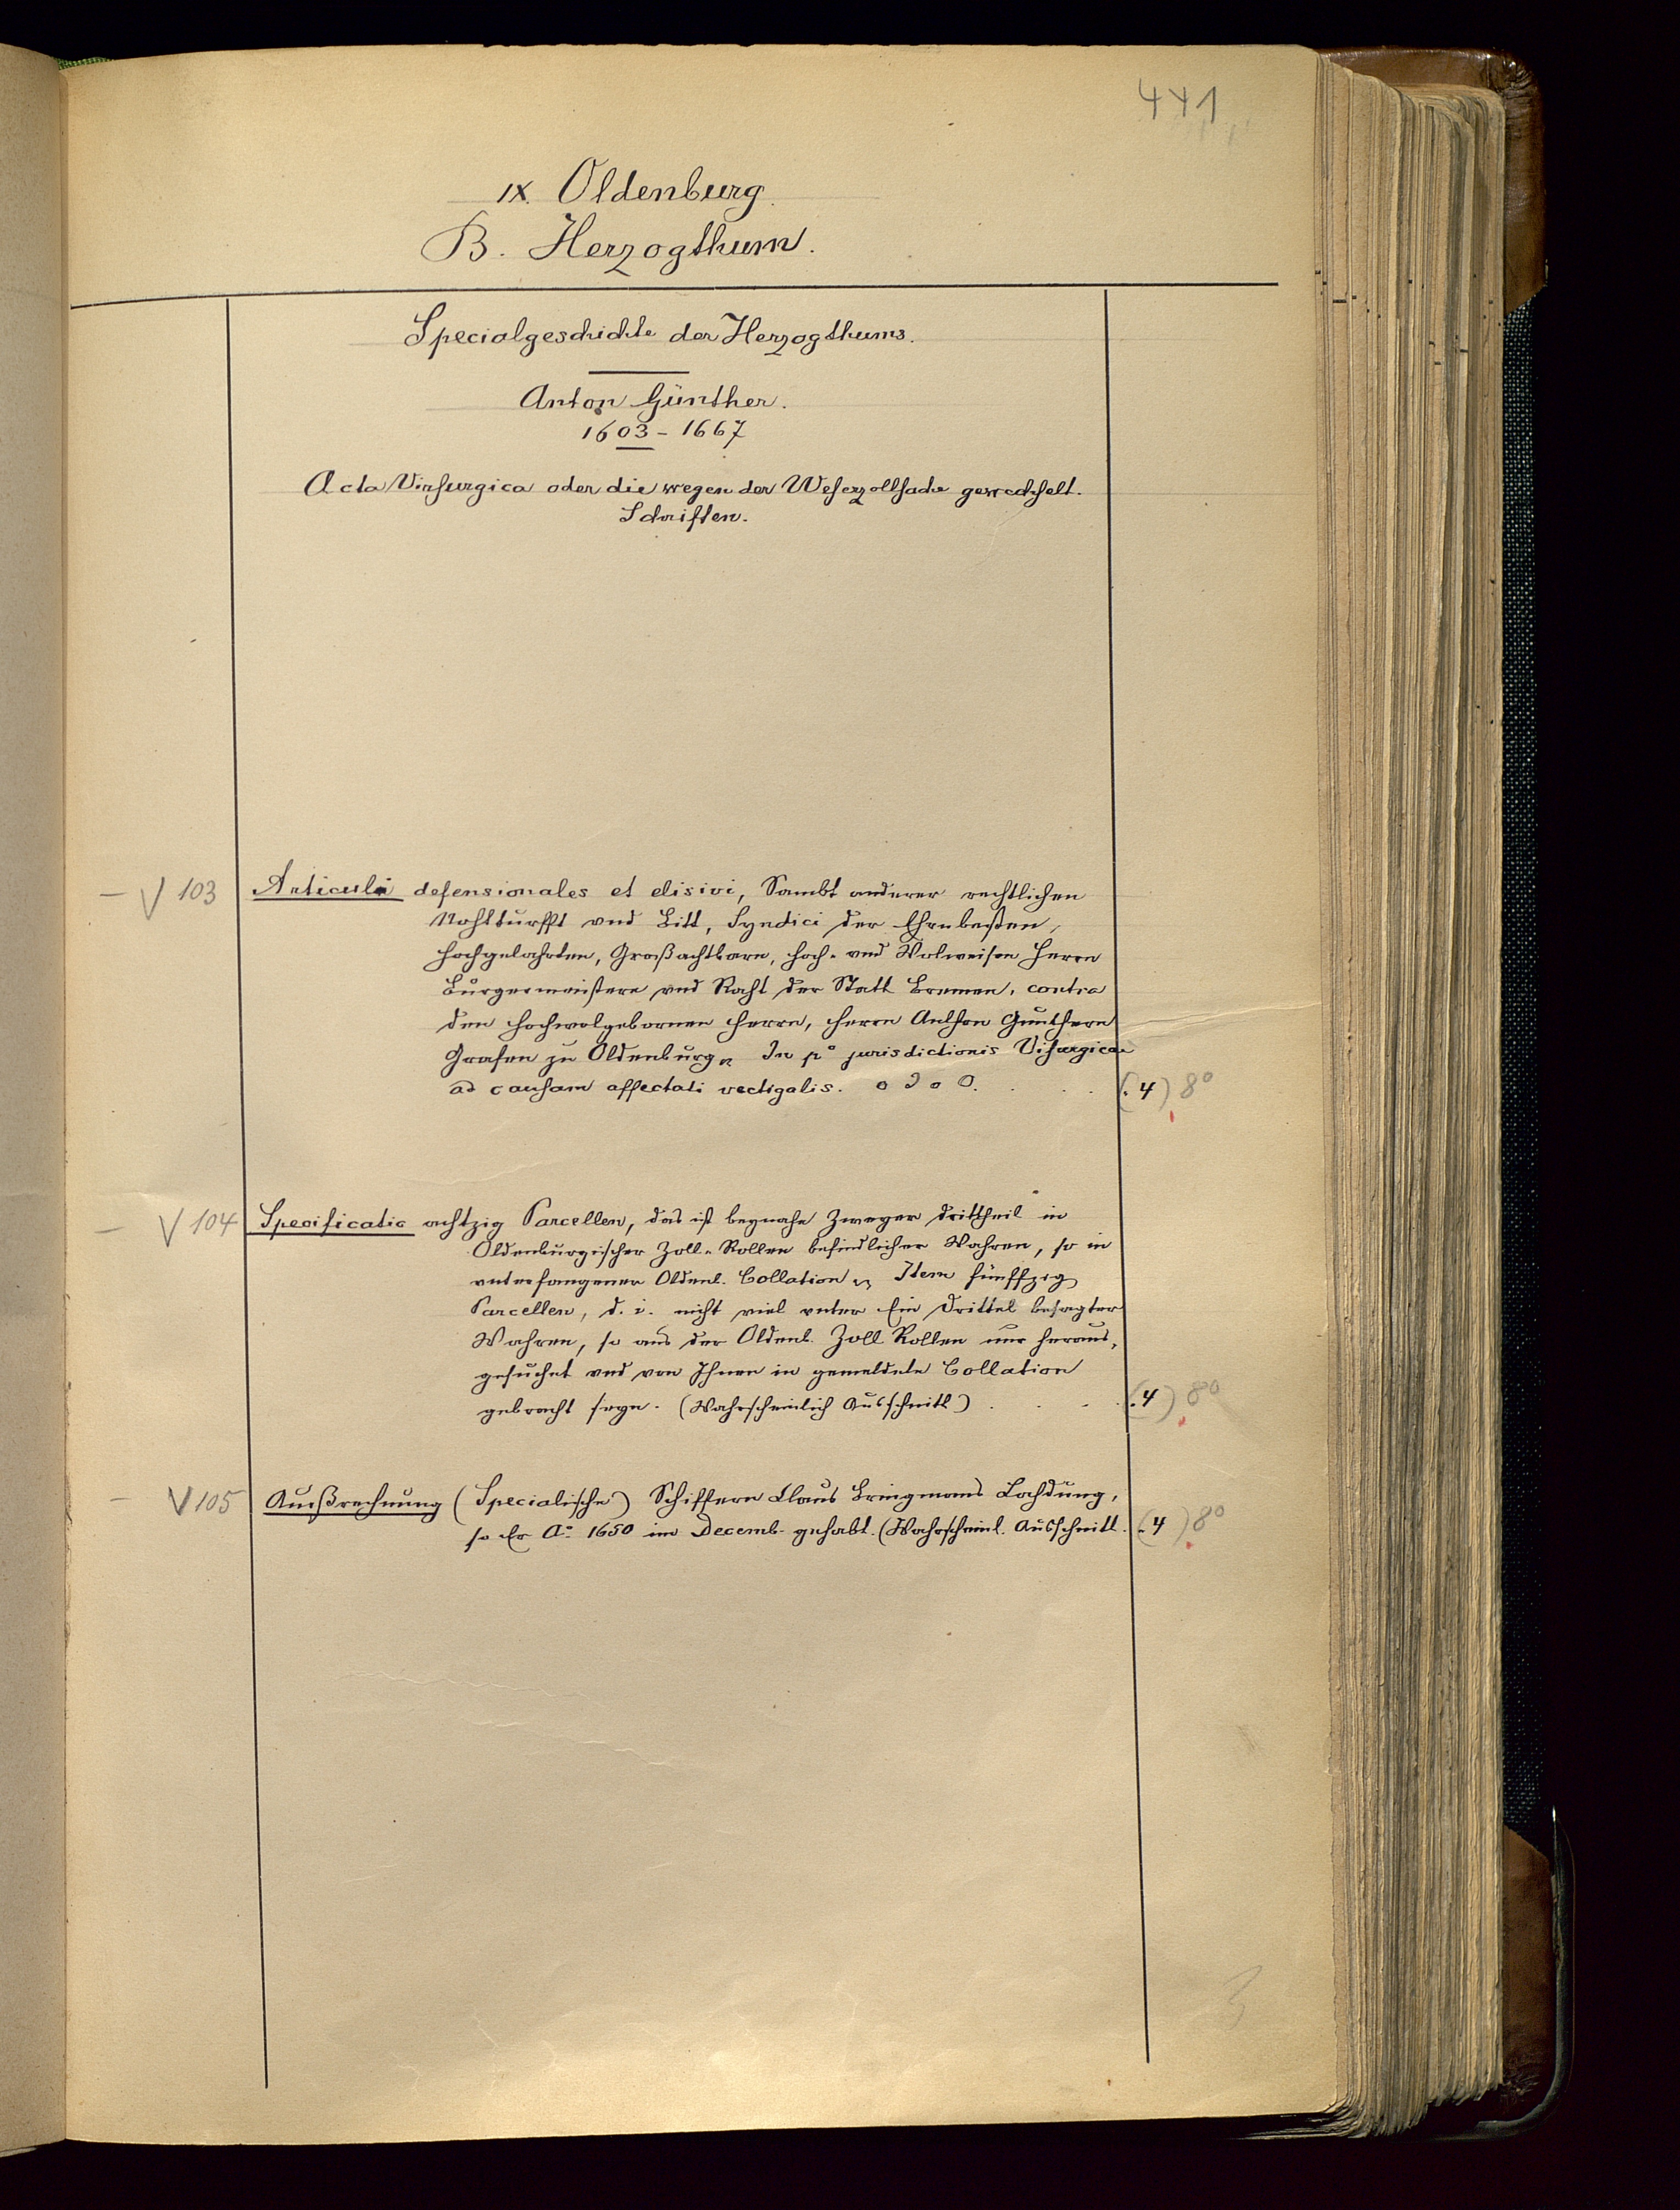 441
IX. Oldenburg.
B. Herzogthum.
Specialgeschichte des Herzogthums.
Anton Günther.
1603-1667
Acta Vinsurgica oder die wegen der Weserzollsache gewechselt.
Schriften.
103 Articuli defensionales et elisivi, Sambt anderer rechtlichen
Nohtturfft und Bitt, Syndici der Ehrnvesten,
hochgelahrten, Großachtbarn, hoch- und Wolweisen Herrn
Bürgermeistern und Raht der Statt Bremen, contra
den hochwolgebornen Herrn, Herrn Anthon Günthern
Grafen zu Oldenburg. In p° jurisdictionis Visurgicae
ad causam affectati vectigalis. o J o O. (4) 8°
104 Specificatio achtzig Parcellen, das ist beynahe Zweyer drittheil in
Oldenburgischer Zoll-Rollen befindlicher Wahren, so in
unterfangener Oldenb. Collation Item fünffzig
Parcellen, d. i. nicht viel unter Ein Drittel besagter
Wahren, so aus der Oldenb. Zoll Rollen nur heraus-
gesuchet und von Ihnen in gemeldete Collation
gebracht seyn. (Wahrscheinlich Ausschnitt) (4) 8°
105 Außrechnung (Specialische) Schiffern Claus Bringmans Lachdung,
so Er A° 1650 im Decemb. gehabt. (Wahrscheinl. Ausschnitt. (4) 8°